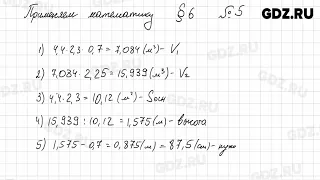 Применяем математику § 6 № 5
GDZ.RU
1) 4,4·2,3·0,7 = 7,084 (м³) - V₁
2) 7,084·2,25 = 15,939 (м³) - V₂
3) 4,4·2,3 = 10,12 (м²) - Sосн
4) 15,939 : 10,12 = 1,575 (м) - высота
5) 1,575 - 0,7 = 0,875 (м) = 87,5 (см) - нужно